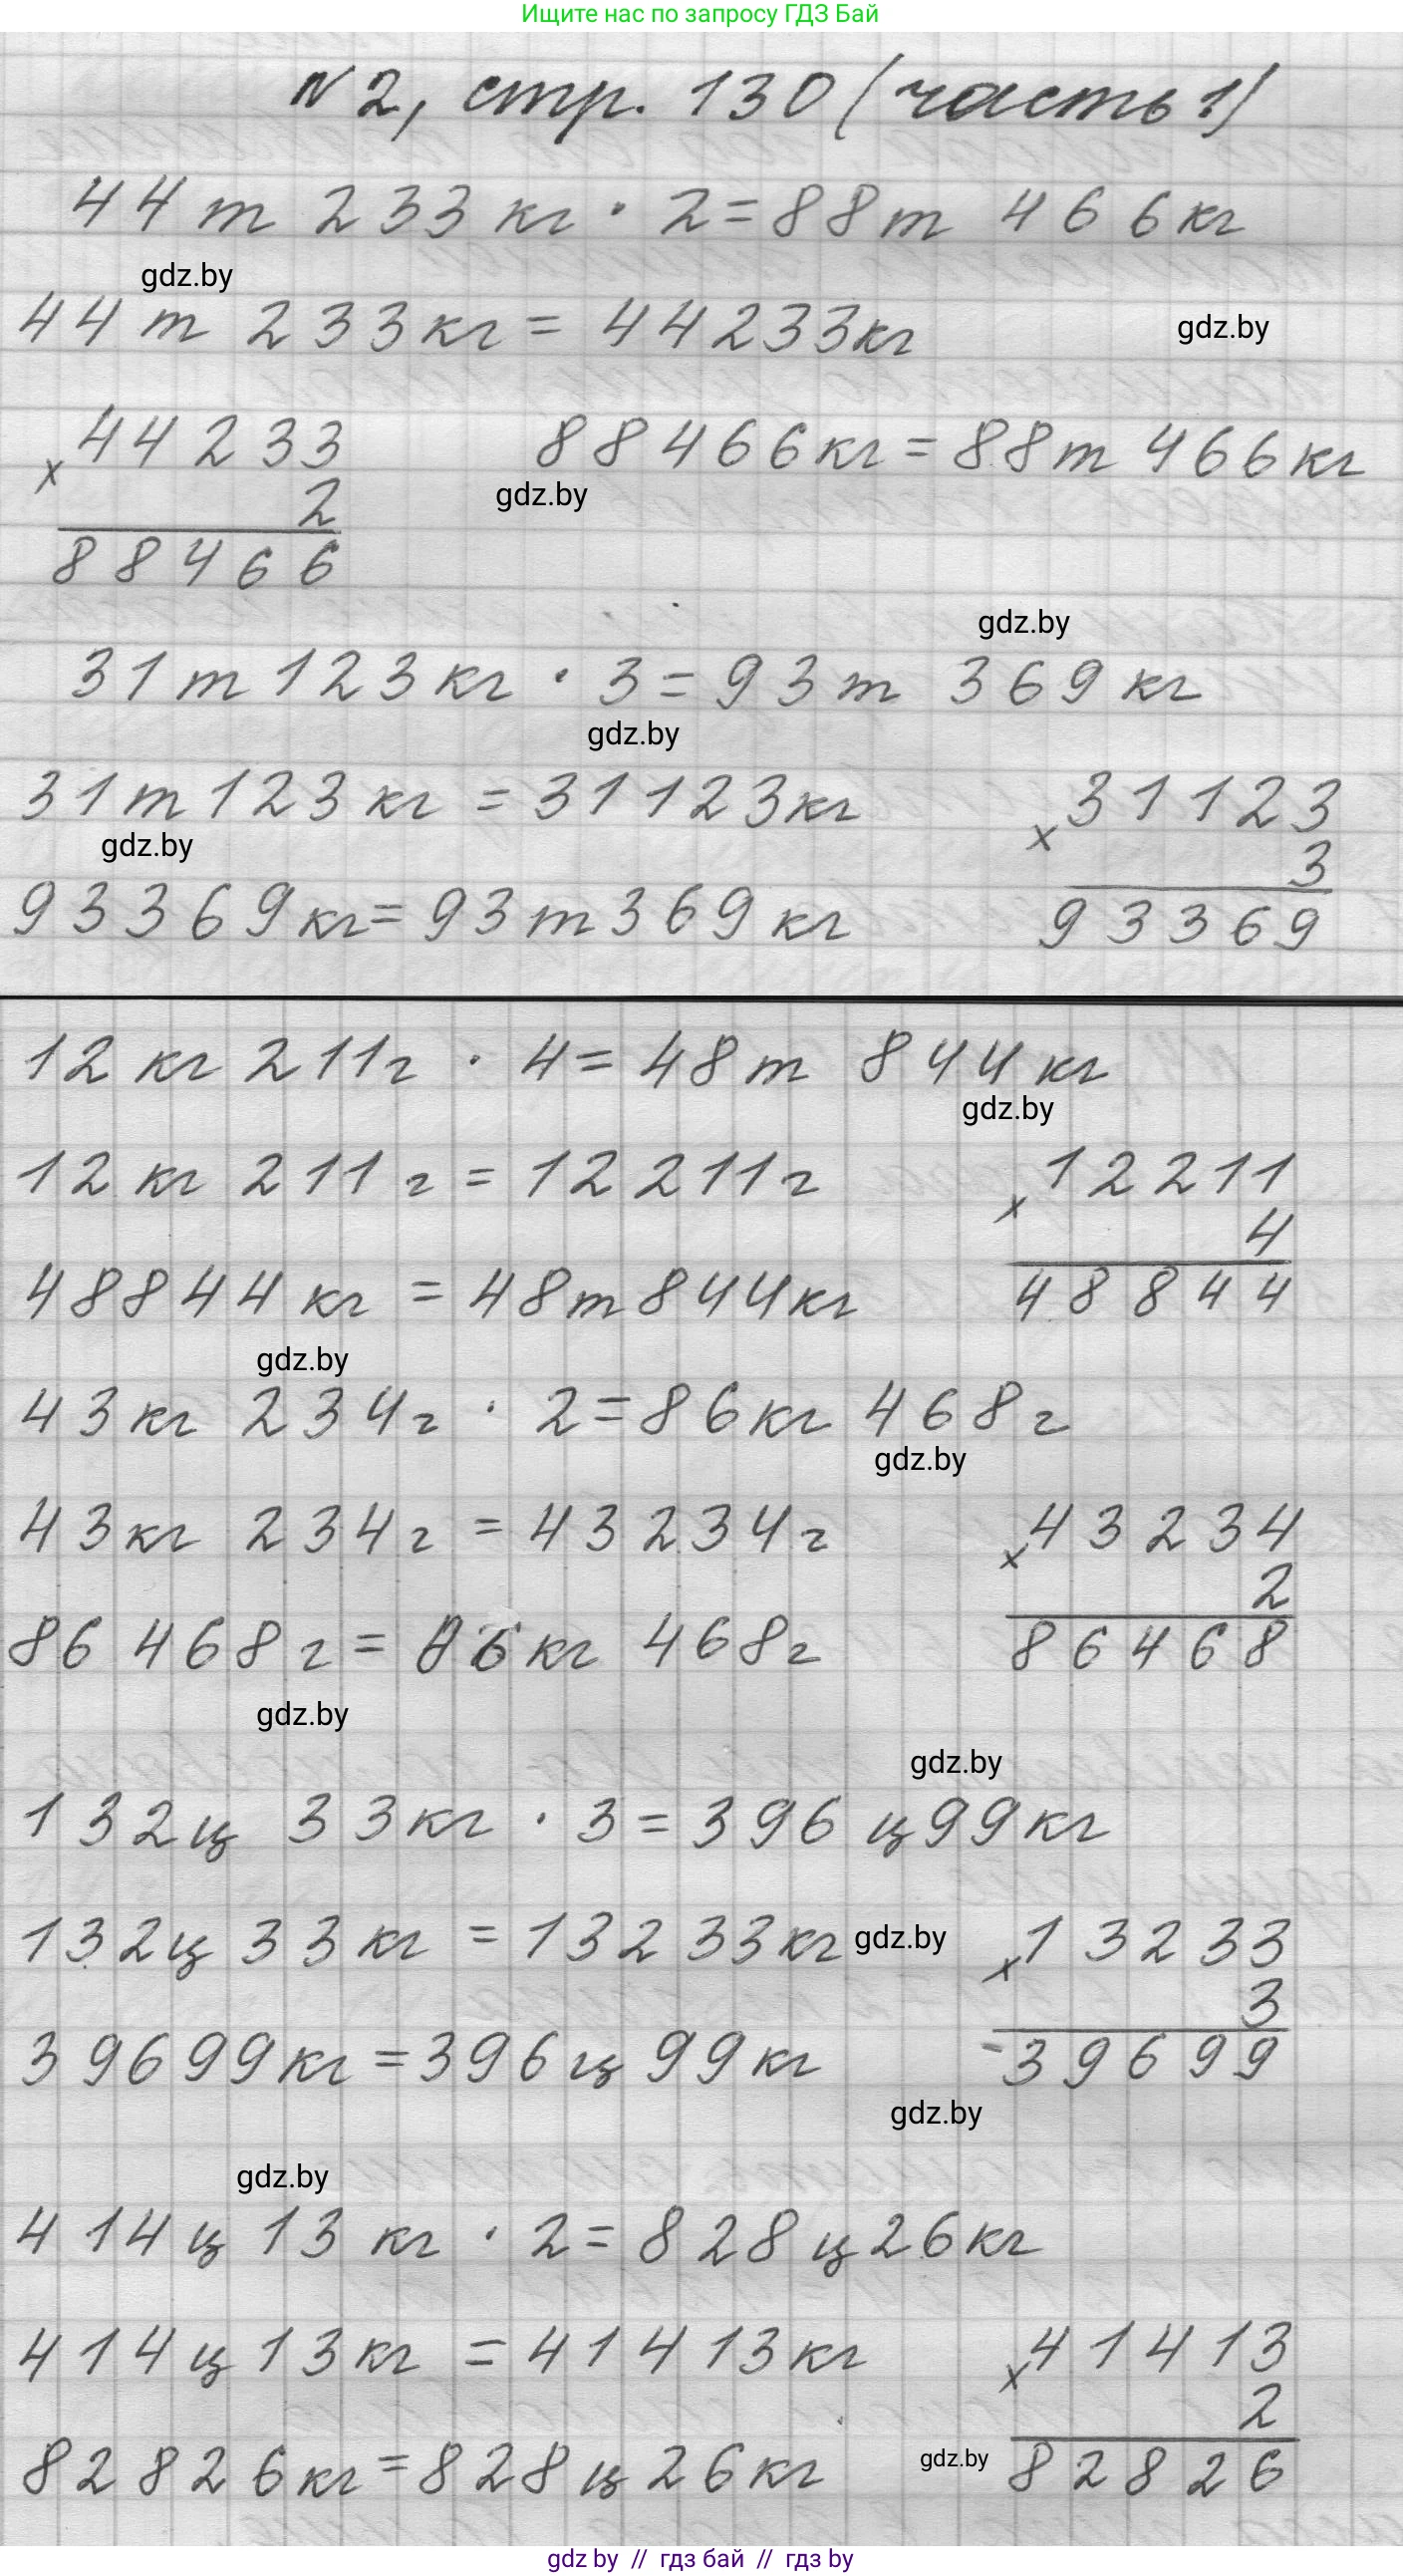 Ищите нас по запросу ГДЗ Бай
N2, стр. 130 (часть 1)
44 т 233 кг · 2 = 88 т 466 кг
gdz.by
44 т 233 кг = 44233 кг
gdz.by
× 44233
2
88466
88466 кг = 88 т 466 кг
gdz.by
gdz.by
31 т 123 кг · 3 = 93 т 369 кг
gdz.by
31 т 123 кг = 31123 кг
× 31123
3
93369
gdz.by
93369 кг = 93 т 369 кг
12 кг 211 г · 4 = 48 т 844 кг
gdz.by
12 кг 211 г = 12211 г
× 12211
4
48844
48844 кг = 48 т 844 кг
gdz.by
43 кг 234 г · 2 = 86 кг 468 г
gdz.by
43 кг 234 г = 43234 г
× 43234
2
86468
86 468 г = 86 кг 468 г
gdz.by
gdz.by
132 ц 33 кг · 3 = 396 ц 99 кг
132 ц 33 кг = 13233 кг
gdz.by
× 13233
3
39699
39699 кг = 396 ц 99 кг
gdz.by
gdz.by
414 ц 13 кг · 2 = 828 ц 26 кг
414 ц 13 кг = 41413 кг
× 41413
2
82826
82826 кг = 828 ц 26 кг
gdz.by
gdz by // гдз бай // гдз by